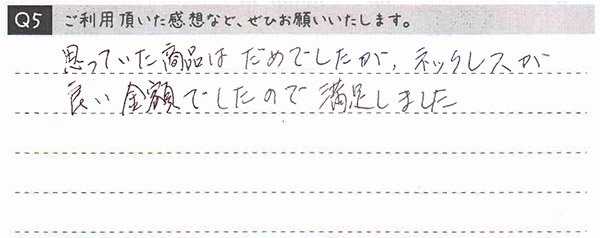 Q5 ご利用頂いた感想など、ぜひお願いいたします。
思っていた商品はだめでしたが、ネックレスが
良い金額でしたので満足しました